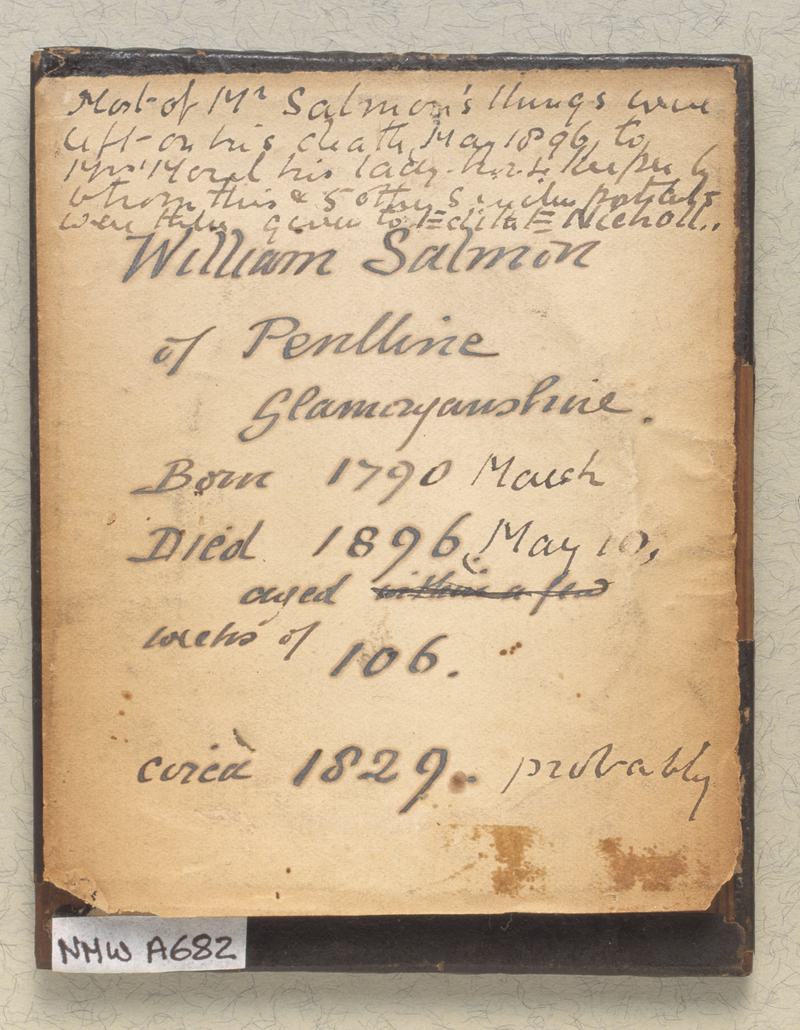 Most of Mr Salmon's things were
left on his death, May 1896, to
Mrs Morel his lady-house keeper by
whom this & 5 other similar portraits
were then given to Edith E Nicholl..
William Salmon
of Penlline
Glamorganshire.
Born 1790 March
Died 1896, May 10,
aged within a few
weeks of
106.
circa 1829. probably
NMW A682